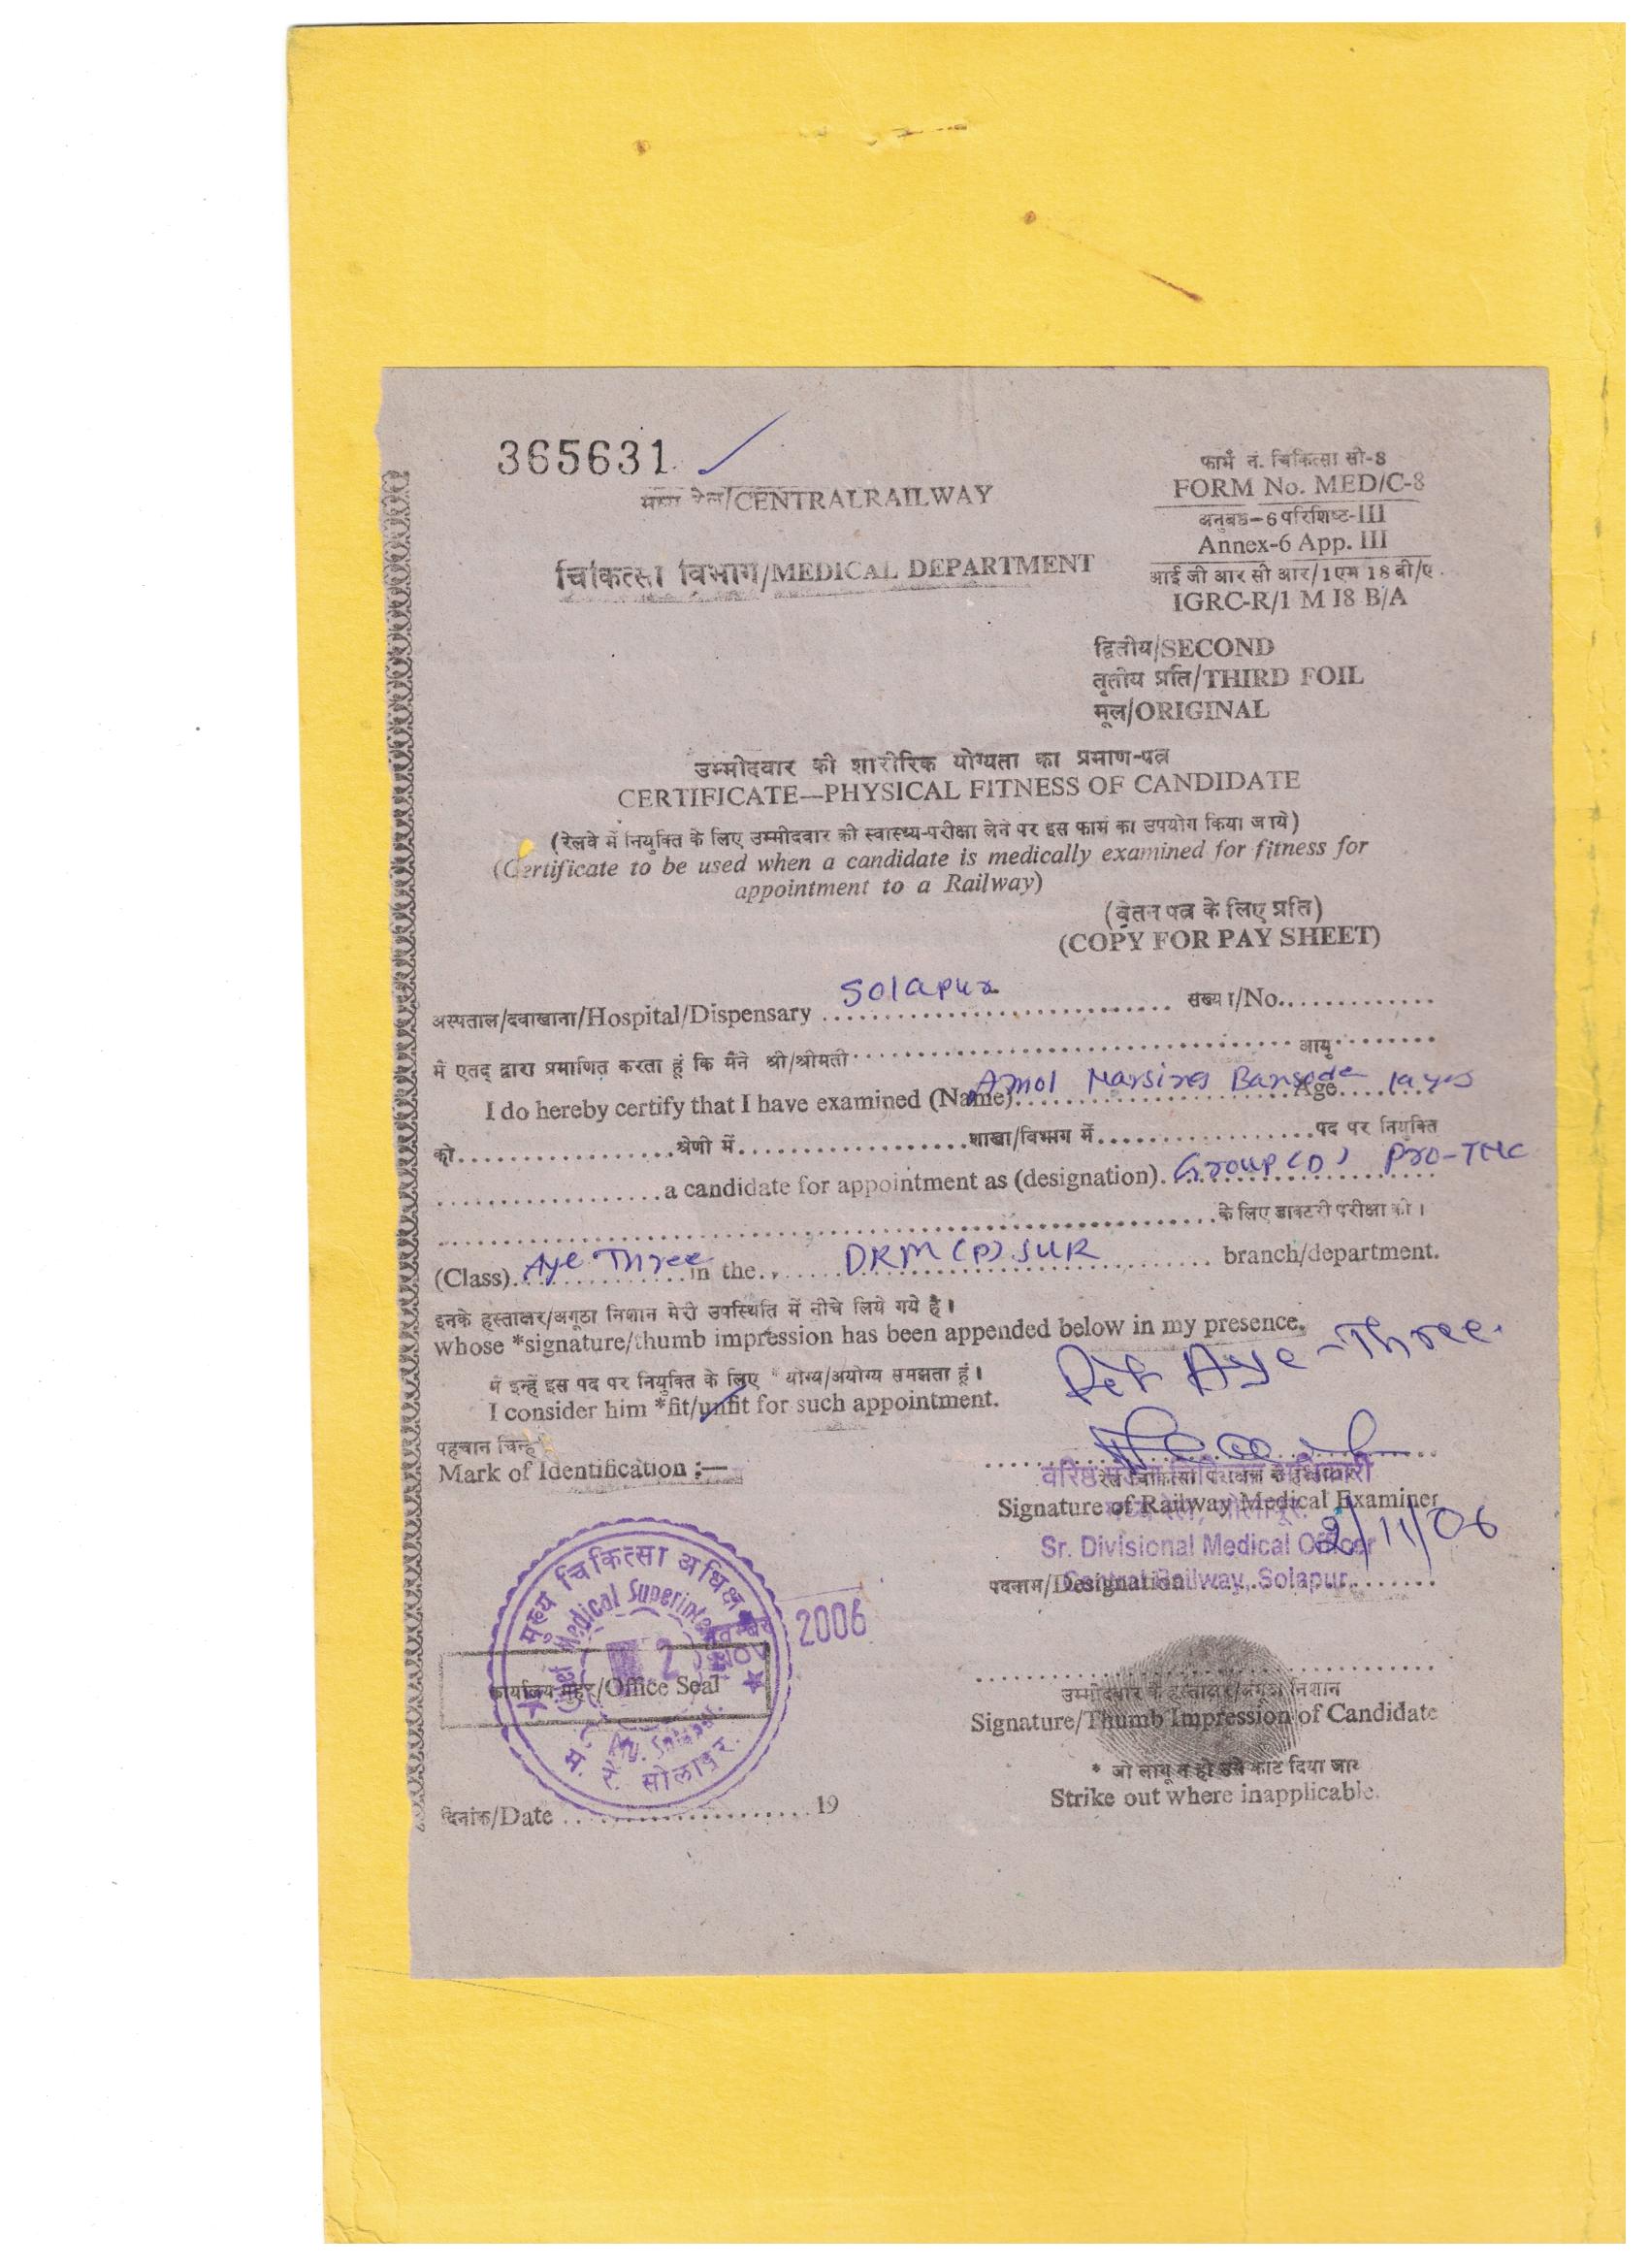 365631
मध्य रेल/CENTRALRAILWAY
फार्म नं. चिकित्सा सी-8
FORM No. MED/C-8
अनुबंध-6 परिशिष्ट-III
Annex-6 App. III
आई जी आर सी आर/1एम 18 बी/ए
IGRC-R/1 M I8 B/A
चिकित्सा विभाग/MEDICAL DEPARTMENT
द्वितीय/SECOND
तृतीय प्रति/THIRD FOIL
मूल/ORIGINAL
उम्मीदवार की शारीरिक योग्यता का प्रमाण-पत्र
CERTIFICATE—PHYSICAL FITNESS OF CANDIDATE
(रेलवे में नियुक्ति के लिए उम्मीदवार की स्वास्थ्य-परीक्षा लेने पर इस फार्म का उपयोग किया जाये)
(Certificate to be used when a candidate is medically examined for fitness for
appointment to a Railway)
(वेतन पत्र के लिए प्रति)
(COPY FOR PAY SHEET)
अस्पताल/दवाखाना/Hospital/Dispensary Solapur संख्या/No.
में एतद् द्वारा प्रमाणित करता हूं कि मैंने श्री/श्रीमती आयु
I do hereby certify that I have examined (Name) Amol Narsing Bansode Age 19 yrs
को श्रेणी में शाखा/विभाग में पद पर नियुक्ति
a candidate for appointment as (designation). Group (D) Pro-TNC
के लिए डाक्टरी परीक्षा की।
(Class) Aye Three in the DRM (P) SUR branch/department.
इनके हस्ताक्षर/अंगूठा निशान मेरी उपस्थिति में नीचे लिये गये है।
whose *signature/thumb impression has been appended below in my presence.
में इन्हें इस पद पर नियुक्ति के लिए * योग्य/अयोग्य समझता हूं।
Fit Aye-Three.
I consider him *fit/unfit for such appointment.
पहचान चिन्ह
Mark of Identification :—
वरिष्ठ मंडल चिकित्सा अधिकारी
Signature of Railway Medical Examiner
मध्य रेल, सोलापूर.
2/11/06
Sr. Divisional Medical Officer
पदनाम/Designation
Central Railway, Solapur.
मुख्य चिकित्सा अधिक्षक
Medical Superinte
2 नवम्बर NOV 2006
कार्यालय मुहर/Office Seal
Solapur.
म. रे. सोलापुर.
उम्मीदवार के हस्ताक्षर/अंगूठा निशान
Signature/Thumb Impression of Candidate
* जो लागू न हो उसे काट दिया जाए
Strike out where inapplicable.
दिनांक/Date 19